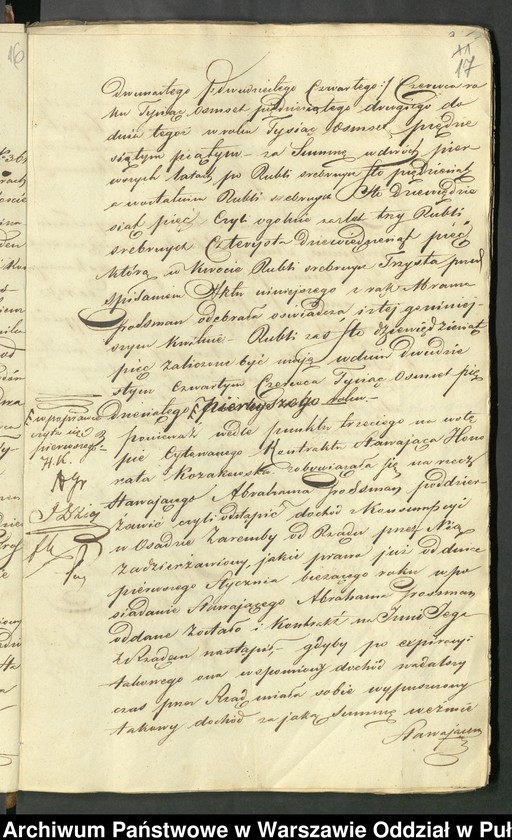 16
11
17
dwunastego /: dwudziestego Czwartego :/ Czerwca ro
ku Tysiąc osmset pięćdziesiątego drugiego do
dnia tegoż w roku Tysiąc osmset pięćdzie
siątym piątym – za Summę w dwóch pier
wszych latach po Rubli srebrnych sto pięćdziesiąt
a w ostatnim Rubli srebrnych Sto Dziewięćdzie
siąt pięć czyli ogólnie za lat trzy Rubli
srebrnych Czterysta Dziewięćdziesiąt pięć
którą w kwocie Rubli srebrnych Trzysta przed
spisaniem Aktu niniejszego z rąk Abrama
Grossman odebrała oświadcza i z tej
kwituie – Rubli zaś Sto dziewięćdziesiąt
pięć zaliczone być mają w dniu dwudzie
stym Czwartym Czerwca Tysiąc osmset pię
dziesiątego pierwszego
ponieważ wedle punktu trzeciego na wstę
pie cytowanego Kontraktu Stawająca Hono
rata Kozakowska zobowiązała się na rzecz
Stawającego Abrahama Grossman poddzier
żawić czyli odstąpić dochód Konsumpcyi
w Osadzie Zaręmby od Rządu przez Nią
zadzierżawiony, jakie prawo już od dnia
pierwszego Stycznia bieżącego roku w po
siadanie Stawającego Abrahama Grossman
oddane zostało i kontrakt na Imie Jego
z Rządem nastąpił, – gdyby po expiracyi
takowego ona wspomniony dochód nadalszy
czas przez Rząd miała sobie wypuszczony
takowy dochód za jaką Summę weźmie
Stawająca
w poprawie
czyta się
pierwszego
H. K.
AGr
Archiwum Państwowe w Warszawie Oddział w Puł